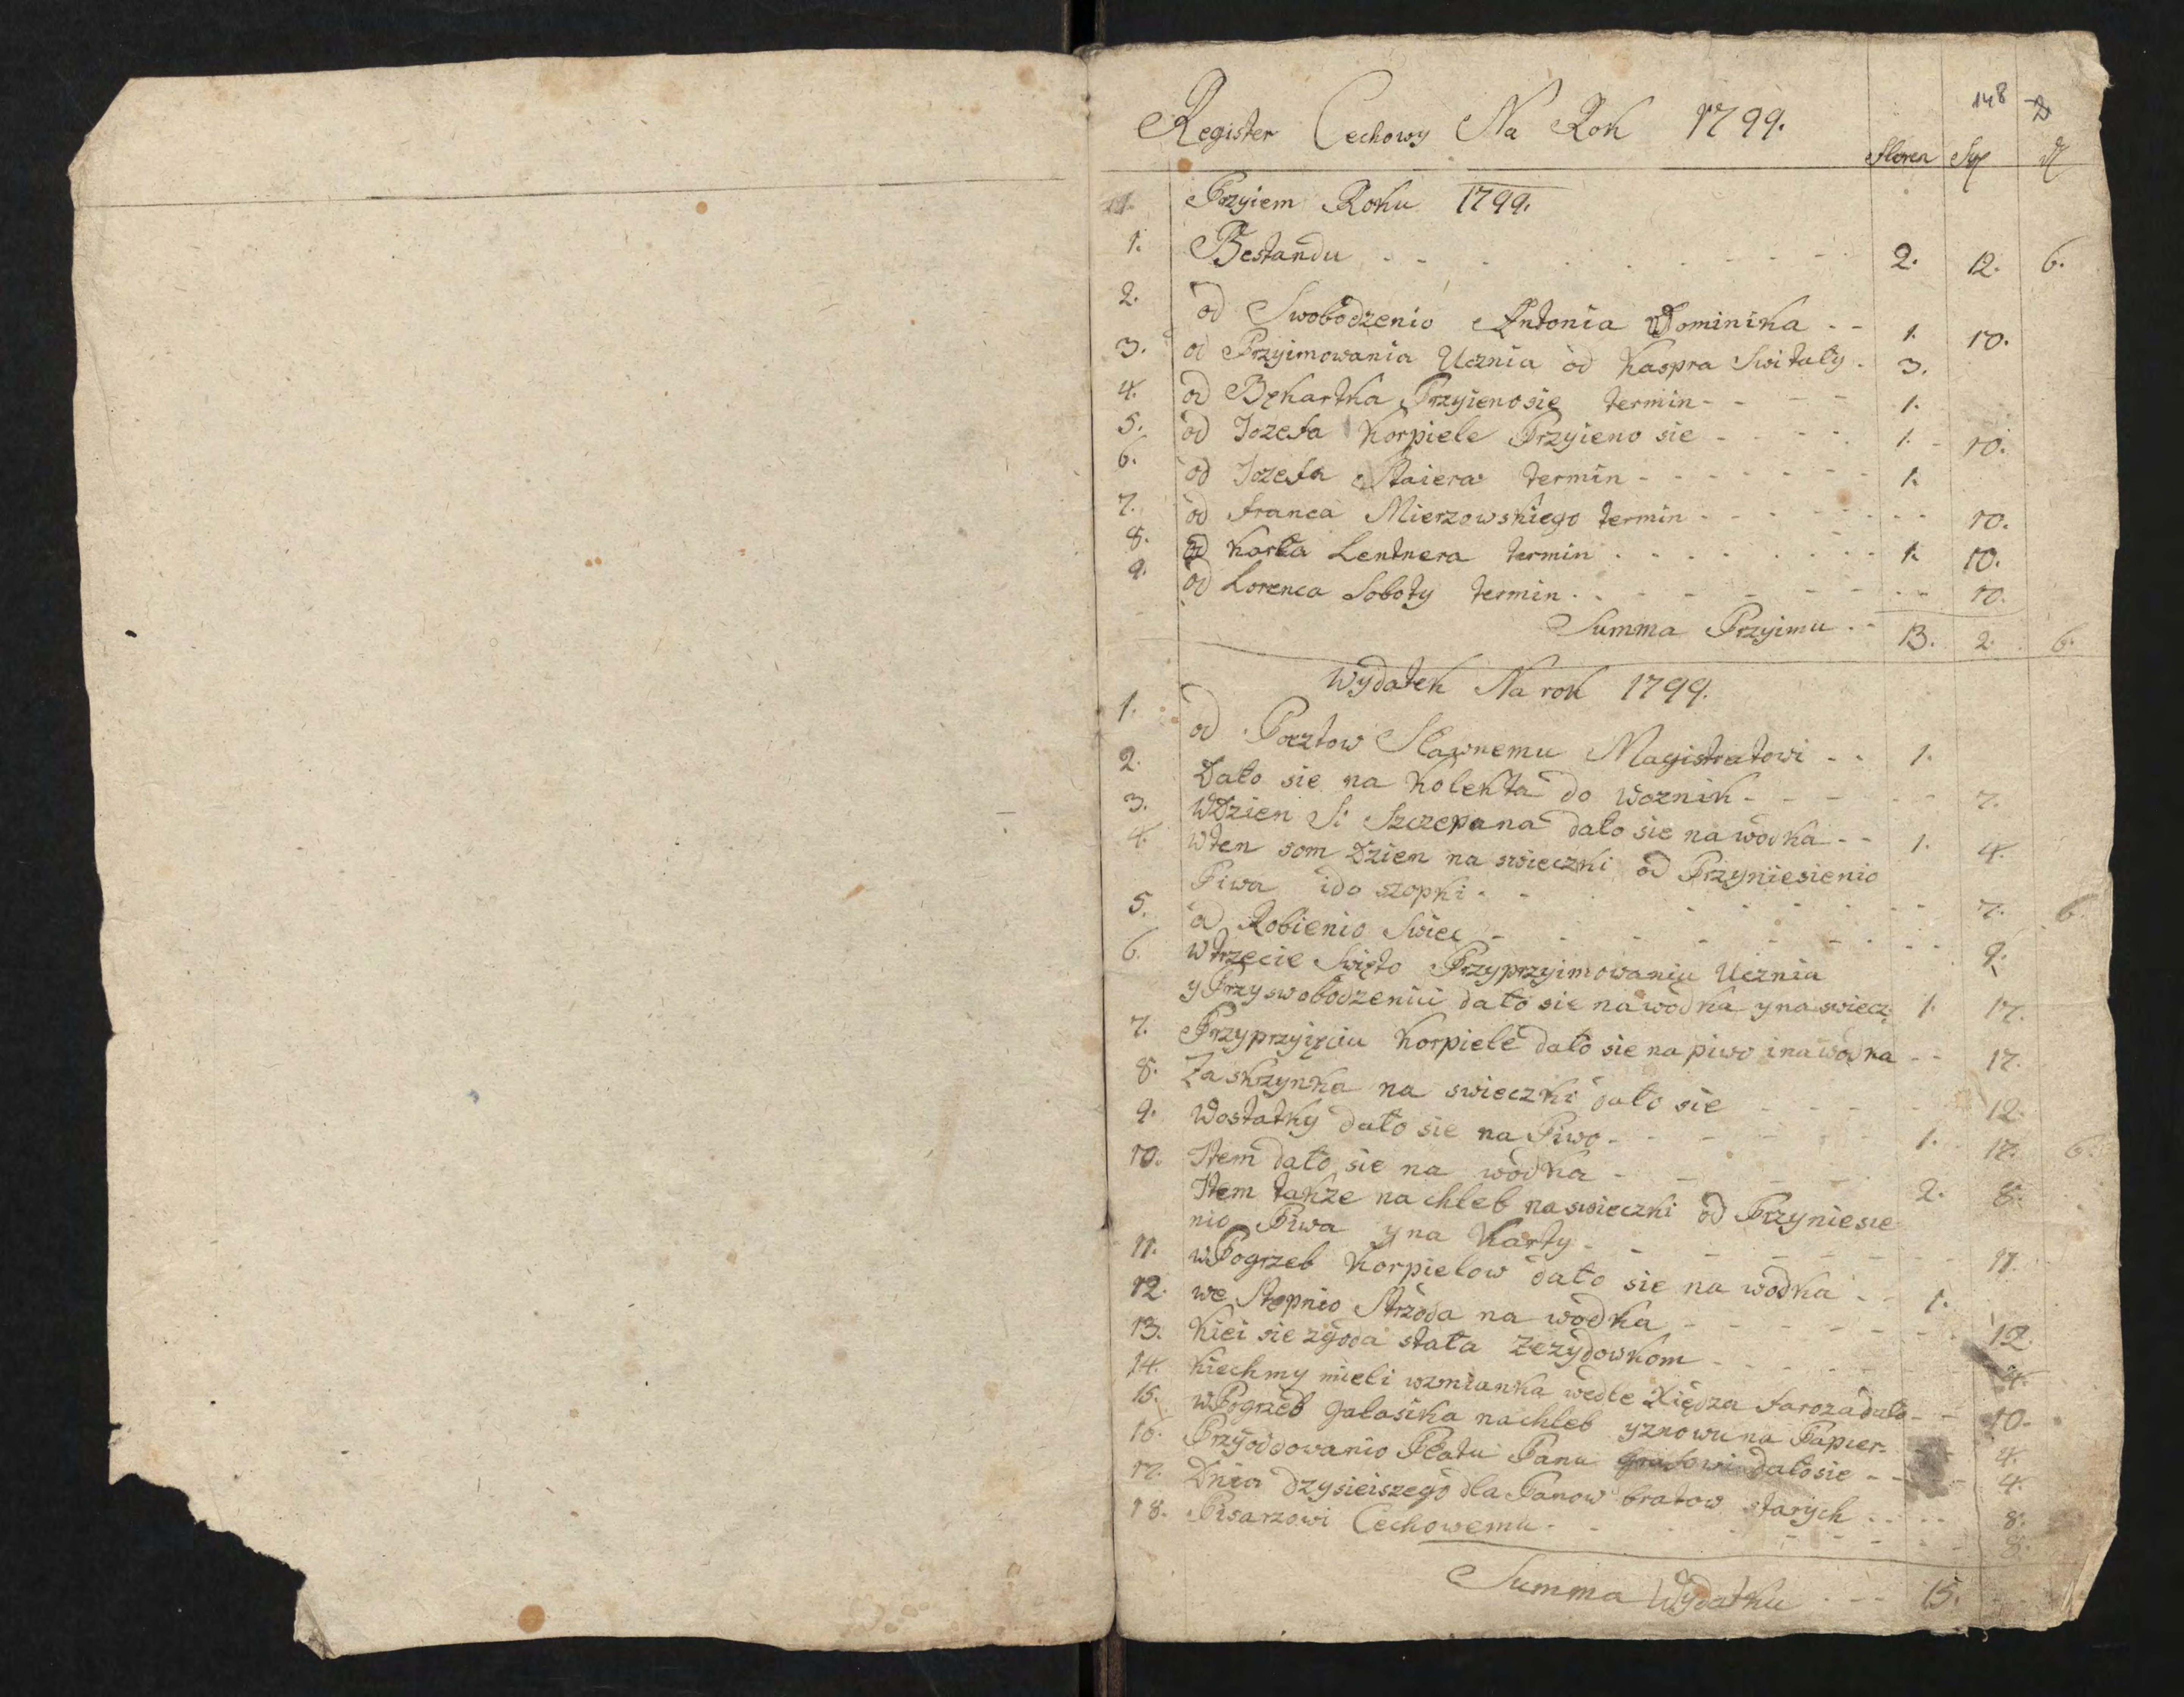 148
Register Cechowy Na Rok 1799.
Floren Sgl
Przyiem Roku 1799.
1. Bestandu - - - 2. 12. 6.
2. od Swobodzenio Antonia Dominika - - 1. 10.
3. od Przyimowania Ucznia od Kaspra Switały . 3.
4. od Bękartka Przyienosię termin - - - - 1.
5. od Iozefa Korpiele Przyieno sie - - - - 1. - 10.
6. od Iozefa Staiera termin - - - - - - - 1.
7. od franca Mierzowskiego termin - - - - - - - 10.
8. od Karla Lentnera termin - - - - - - - 1. 10.
9. od Lorenca Soboty termin - - - - - - - 10.
Summa Przyimu - - 13. 2. 6.
Wydatek Na rok 1799.
1. od Pocztow Sławnemu Magistratowi - - 1.
2. Dało sie na Kolekta do woznik - - - - - 7.
3. WDzien S: Szczepana dało sie na wodka - - 1. 4.
4. Wten som Dzien na swieczki od Przyniesienio
Piwa ido szopki - - - - - - - 7. 6.
5. od Robienio Swiec - - - - - - - 9.
6. Wtrzecie Swięto Przyprzyimowaniu Ucznia
y Przyswobodzeniu dało sie na wodka yna swiecz. 1. 17.
7. Przyprzyięciu Korpiele dało sie na piwo ina wodka - - 17.
8. Za skrzynka na swieczki dało sie - - - - 12.
9. Wostatky dało sie na Piwo - - - - - 1. 17. 6.
10. Item dało sie na wodka - - - - 2. 8.
Item takze na chleb na swieczki od Przyniesie
nio Piwa yna Karty - - - - - - - 11.
11. wPogrzeb Korpielow dało sie na wodka - - 1.
12. we Stepnio Strzoda na wodka - - - - - - 12.
13. Kiei sie zgoda stała Zezydowkom - - - - - 4.
14. Kiechmy mieli wzmianka wedle Xiędza faroza dało - - 10.
15. wPogrzeb Galasika nachleb yznowu na Papier - 4.
16. Przyoddowanio Płatu Panu dało sie - - - 4.
17. Dnia dzysieiszego dla Panow bratow starych - - - - 8.
18. Pisarzowi Cechowemu - - - - - - - 8.
Summa Wydatku - - - 15.